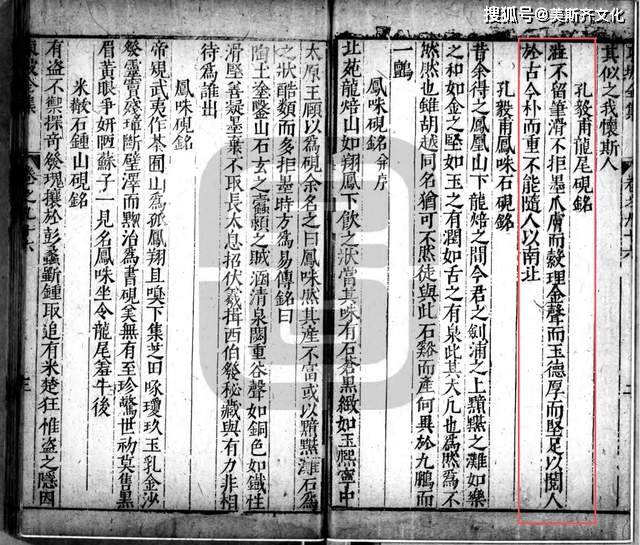 搜狐号@美斯齐文化
其似之我懷斯人
孔毅甫龍尾硯銘
澁不留筆滑不拒墨爪膚而縠理金聲而玉德厚而堅足以閱人
於古今朴而重不能隨人以南北
孔毅甫鳳咮石硯銘
昔余得之鳳凰山下龍焙之間今君之劍浦之上黯黮之灘如樂
之和如金之堅如玉之有潤如舌之有泉此其大凡也為然為不
然然也雖胡越同名猶可不然徒與此石谿而產何異於九鵬而
一鷃
鳳咮硯銘并序
北苑龍焙山如翔鳳下飲之狀當其咮有石蒼黑緻如玉熙寧中
太原王頤以為硯余名之曰鳳咮然其產不富或以黯黮灘石為
之狀酷類而多拒墨時方為易傳銘曰
陶土塗鑿山石玄之蠹穎之賊涵清泉閟重谷聲如銅色如鐵性
滑堅善凝墨棄不取長太息招伏羲揖西伯發秘藏與有力非相
待為誰出
鳳咮硯銘
帝規武夷作茶囿山為孤鳳翔且嗅下集芝田啄瓊玖玉乳金沙
發靈竇殘璋斷璧澤而黝治為書硯美無有至珍驚世初莫售黑
眉黃眼爭妍陋蘇子一見名鳳咮坐令龍尾羞牛後
米黻石鍾山硯銘
有盜不禦探奇發瑰攘於彭蠡斲鍾取追有米楚狂惟盜之隱因